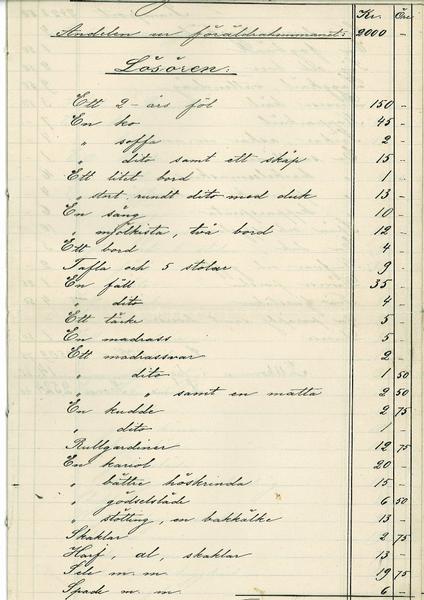 Kr. Öre
Andelen ur föräldrahemmanet: 2000 -
Lösören.
Ett 2-års föl 150 -
En ko 45 -
" soffa 2 -
" dito samt ett skåp 15 -
Ett litet bord 1 -
" stort rundt dito med duk 13 -
En säng 10 -
" mjölkista, två bord 12 -
Ett bord 4 -
Tafla och 5 stolar 9 -
En fäll 35 -
" dito 4 -
Ett täcke 5 -
En madrass 5 -
Ett madrassvar 2 -
" dito 1 50
" " samt en matta 2 50
En kudde 2 75
" dito 1 -
Rullgardiner 12 75
En kariol 20 -
" bättre höskrinda 15 -
" gödselsläde 6 50
" stötting, en bakkälke 13 -
Skaklar 2 75
Harf, al, skaklar 13 -
Sele m. m. 19 75
Spade m. m. 6 -